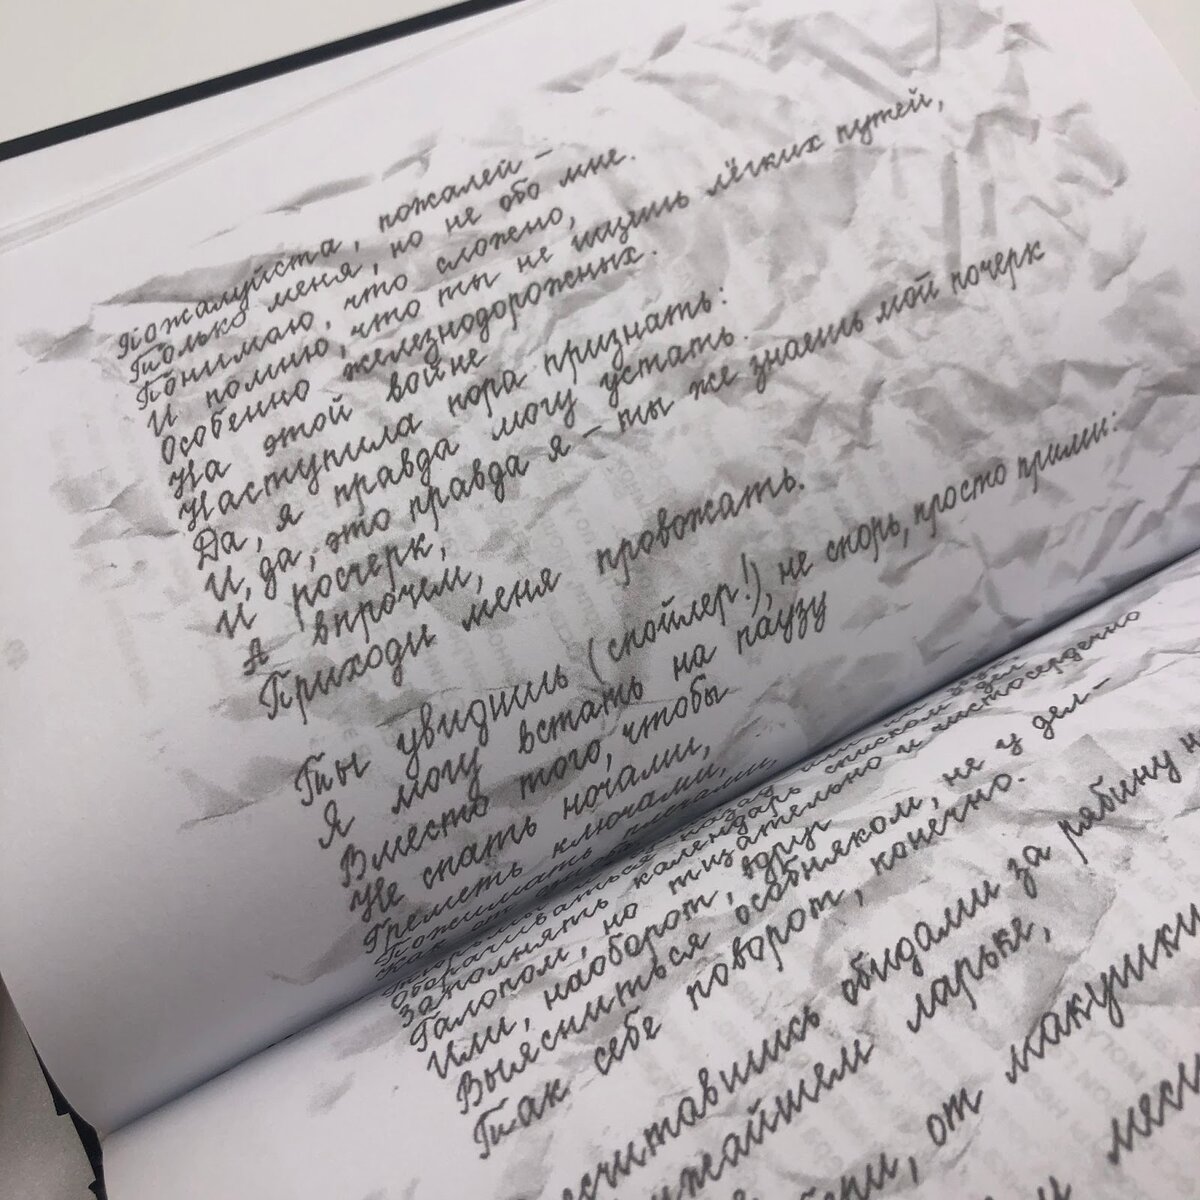 Пожалуйста, пожалей –
Только меня, но не обо мне.
Понимаю, что сложно,
И помню, что ты не ищешь лёгких путей,
Особенно железнодорожных.
На этой войне
Наступила пора признать:
Да, я правда могу устать.
И, да, это правда я – ты же знаешь мой почерк
И росчерк,
А впрочем,
Приходи меня провожать.
Ты увидишь (спойлер!), не спорь, просто прими:
Я могу встать на паузу
Вместо того, чтобы
Не спать ночами,
Греметь ключами,
Пожимать плечами,
Как
Оборачиваться назад или на
Заполнять календарь списком дел
Галопом, но тщательно и чистосердечно
Или, наоборот, вдруг
Выясниться особняком, не у дел –
Так себе поворот, конечно.
обидами за рябину
ларьке,
от макушки